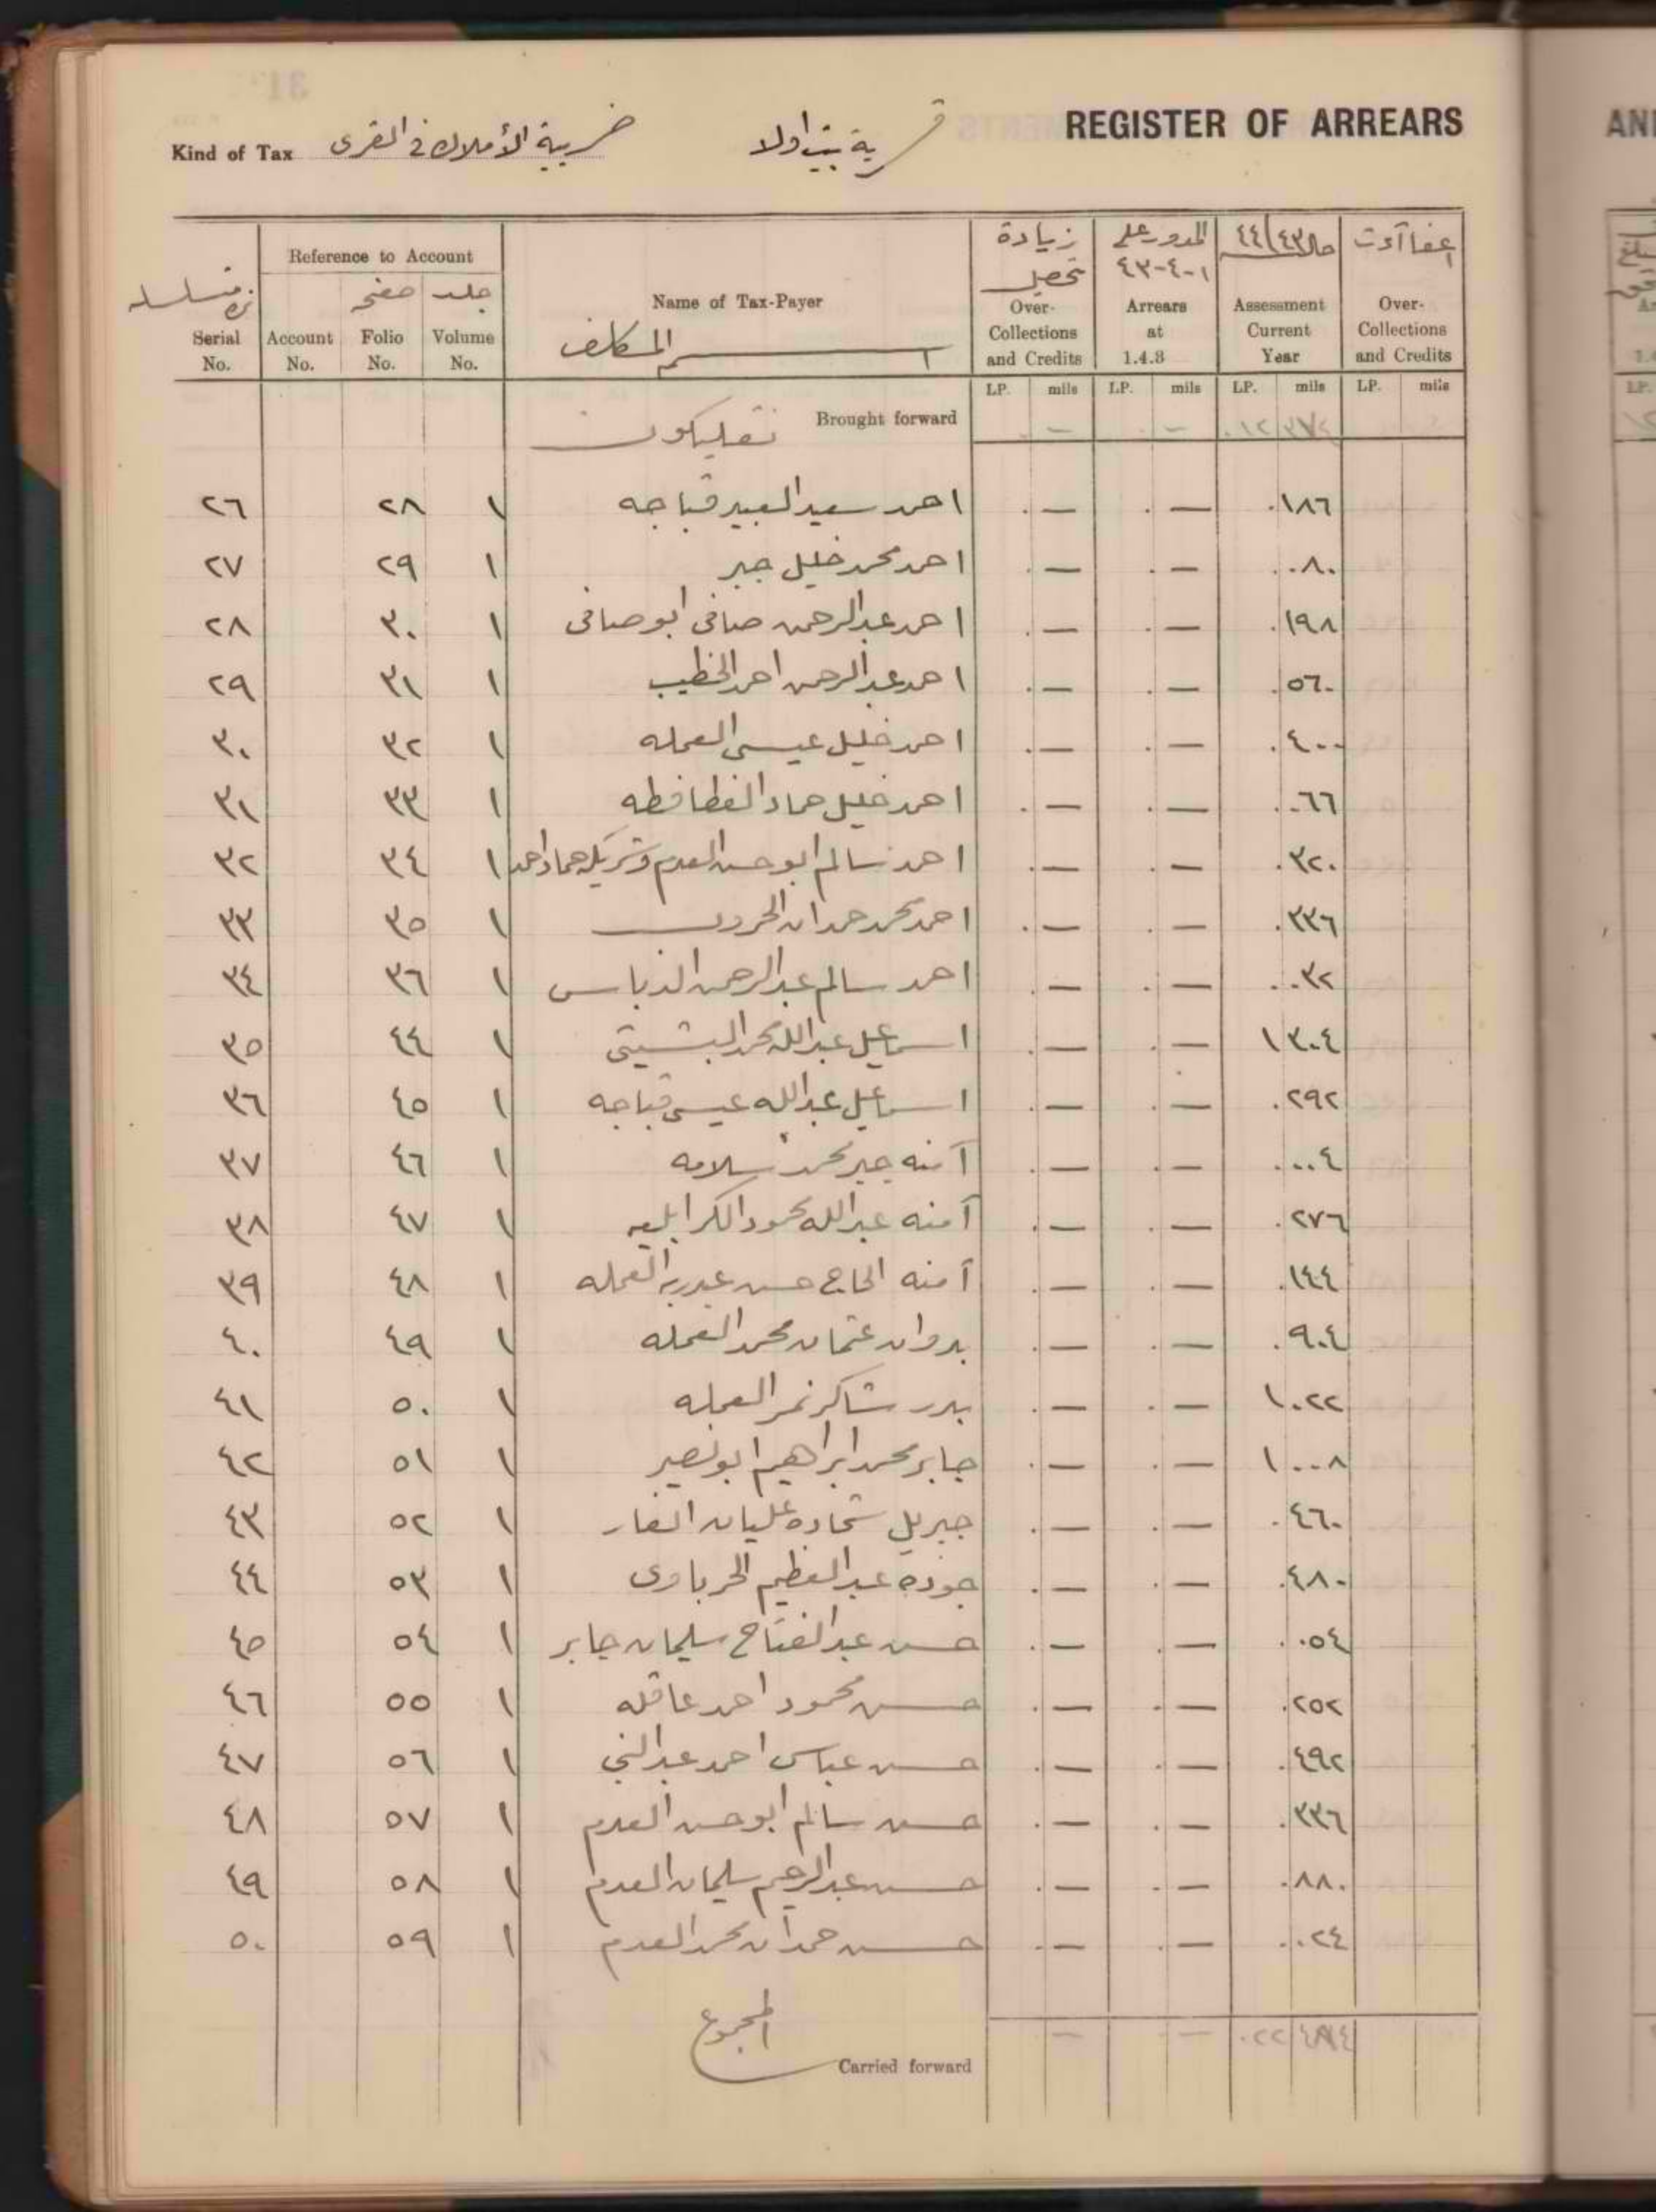 REGISTER OF ARREARS
قرية بيت اولا
Kind of Tax ضريبة الأملاك في القرى
Reference to Account
Serial No. Account No. صفحه Folio No. جلد Volume No. Name of Tax-Payer اسم المكلف زيادة تحصيل Over-Collections and Credits المدور على ١-٤-٤٣ Arrears at 1.4.8 ٤٣/٤٤ Assessment Current Year Over-Collections and Credits
LP. mils LP. mils LP. mils LP. mils
Brought forward — —
٢٦ ٢٨ ١ احمد سعيد العبيد قباجه — — ٠١٨٦
٢٧ ٢٩ ١ احمد محمد خليل جبر — — ٠٠٨٠
٢٨ ٣٠ ١ احمد عبدالرحمن صافى ابو صافى — — ٠١٩٨
٢٩ ٣١ ١ احمد عبدالرحمن احمد الخطيب — — ٠٥٦٠
٣٠ ٣٢ ١ احمد خليل عيسى العمله — — ٠٤٠٠
٣١ ٣٣ ١ احمد خليل حماد الغطافطه — — ٠٠٦٦
٣٢ ٣٤ ١ احمد سالم ابو حسن العدم وشريكه حماد احمد — — ٠٣٢٠
٣٣ ٣٥ ١ احمد محمد حمدان الحروب — — ٠٣٣٦
٣٤ ٣٦ ١ احمد سالم عبدالرحمن الدباس — — ٠٠٣٢
٣٥ ٤٤ ١ اسماعيل عبدالله محمد البشيتي — — ١٣٠٤
٣٦ ٤٥ ١ اسماعيل عبدالله عيسى قباجه — — ٠٢٩٢
٣٧ ٤٦ ١ آمنه جبر محمد سلامه — — ٠٠٠٤
٣٨ ٤٧ ١ آمنه عبدالله محمود — — ٠٢٧٦
٣٩ ٤٨ ١ آمنه الحاج حسن عبدربه العمله — — ٠١٤٤
٤٠ ٤٩ ١ بدوان عثمان محمد العمله — — ٠٩٠٤
٤١ ٥٠ ١ بدر شاكر نمر العمله — — ١٠٢٢
٤٢ ٥١ ١ جابر محمد ابراهيم ابو نصير — — ١٠٠٨
٤٣ ٥٢ ١ جبريل شحاده عليان الفار — — ٠٤٦٠
٤٤ ٥٣ ١ جوده عبدالعظيم الحرباوى — — ٠٤٨٠
٤٥ ٥٤ ١ حسن عبدالفتاح سليمان جابر — — ٠٠٥٤
٤٦ ٥٥ ١ حسن محمود احمد عاقله — — ٠٢٥٢
٤٧ ٥٦ ١ حسن عباس احمد عبدالنبي — — ٠٤٩٢
٤٨ ٥٧ ١ حسن سالم ابو حسن العدم — — ٠٣٣٦
٤٩ ٥٨ ١ حسن عبدالرحيم سليمان العدم — — ٠٨٨٠
٥٠ ٥٩ ١ حسن حمدان محمد العدم — — ٠٠٢٤
المجموع
Carried forward — —